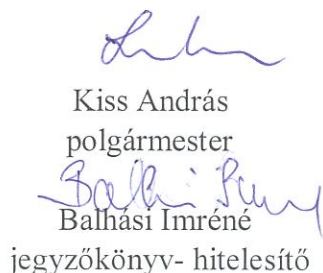 Kiss András
polgármester
Balhási Imréné
jegyzőkönyv- hitelesítő